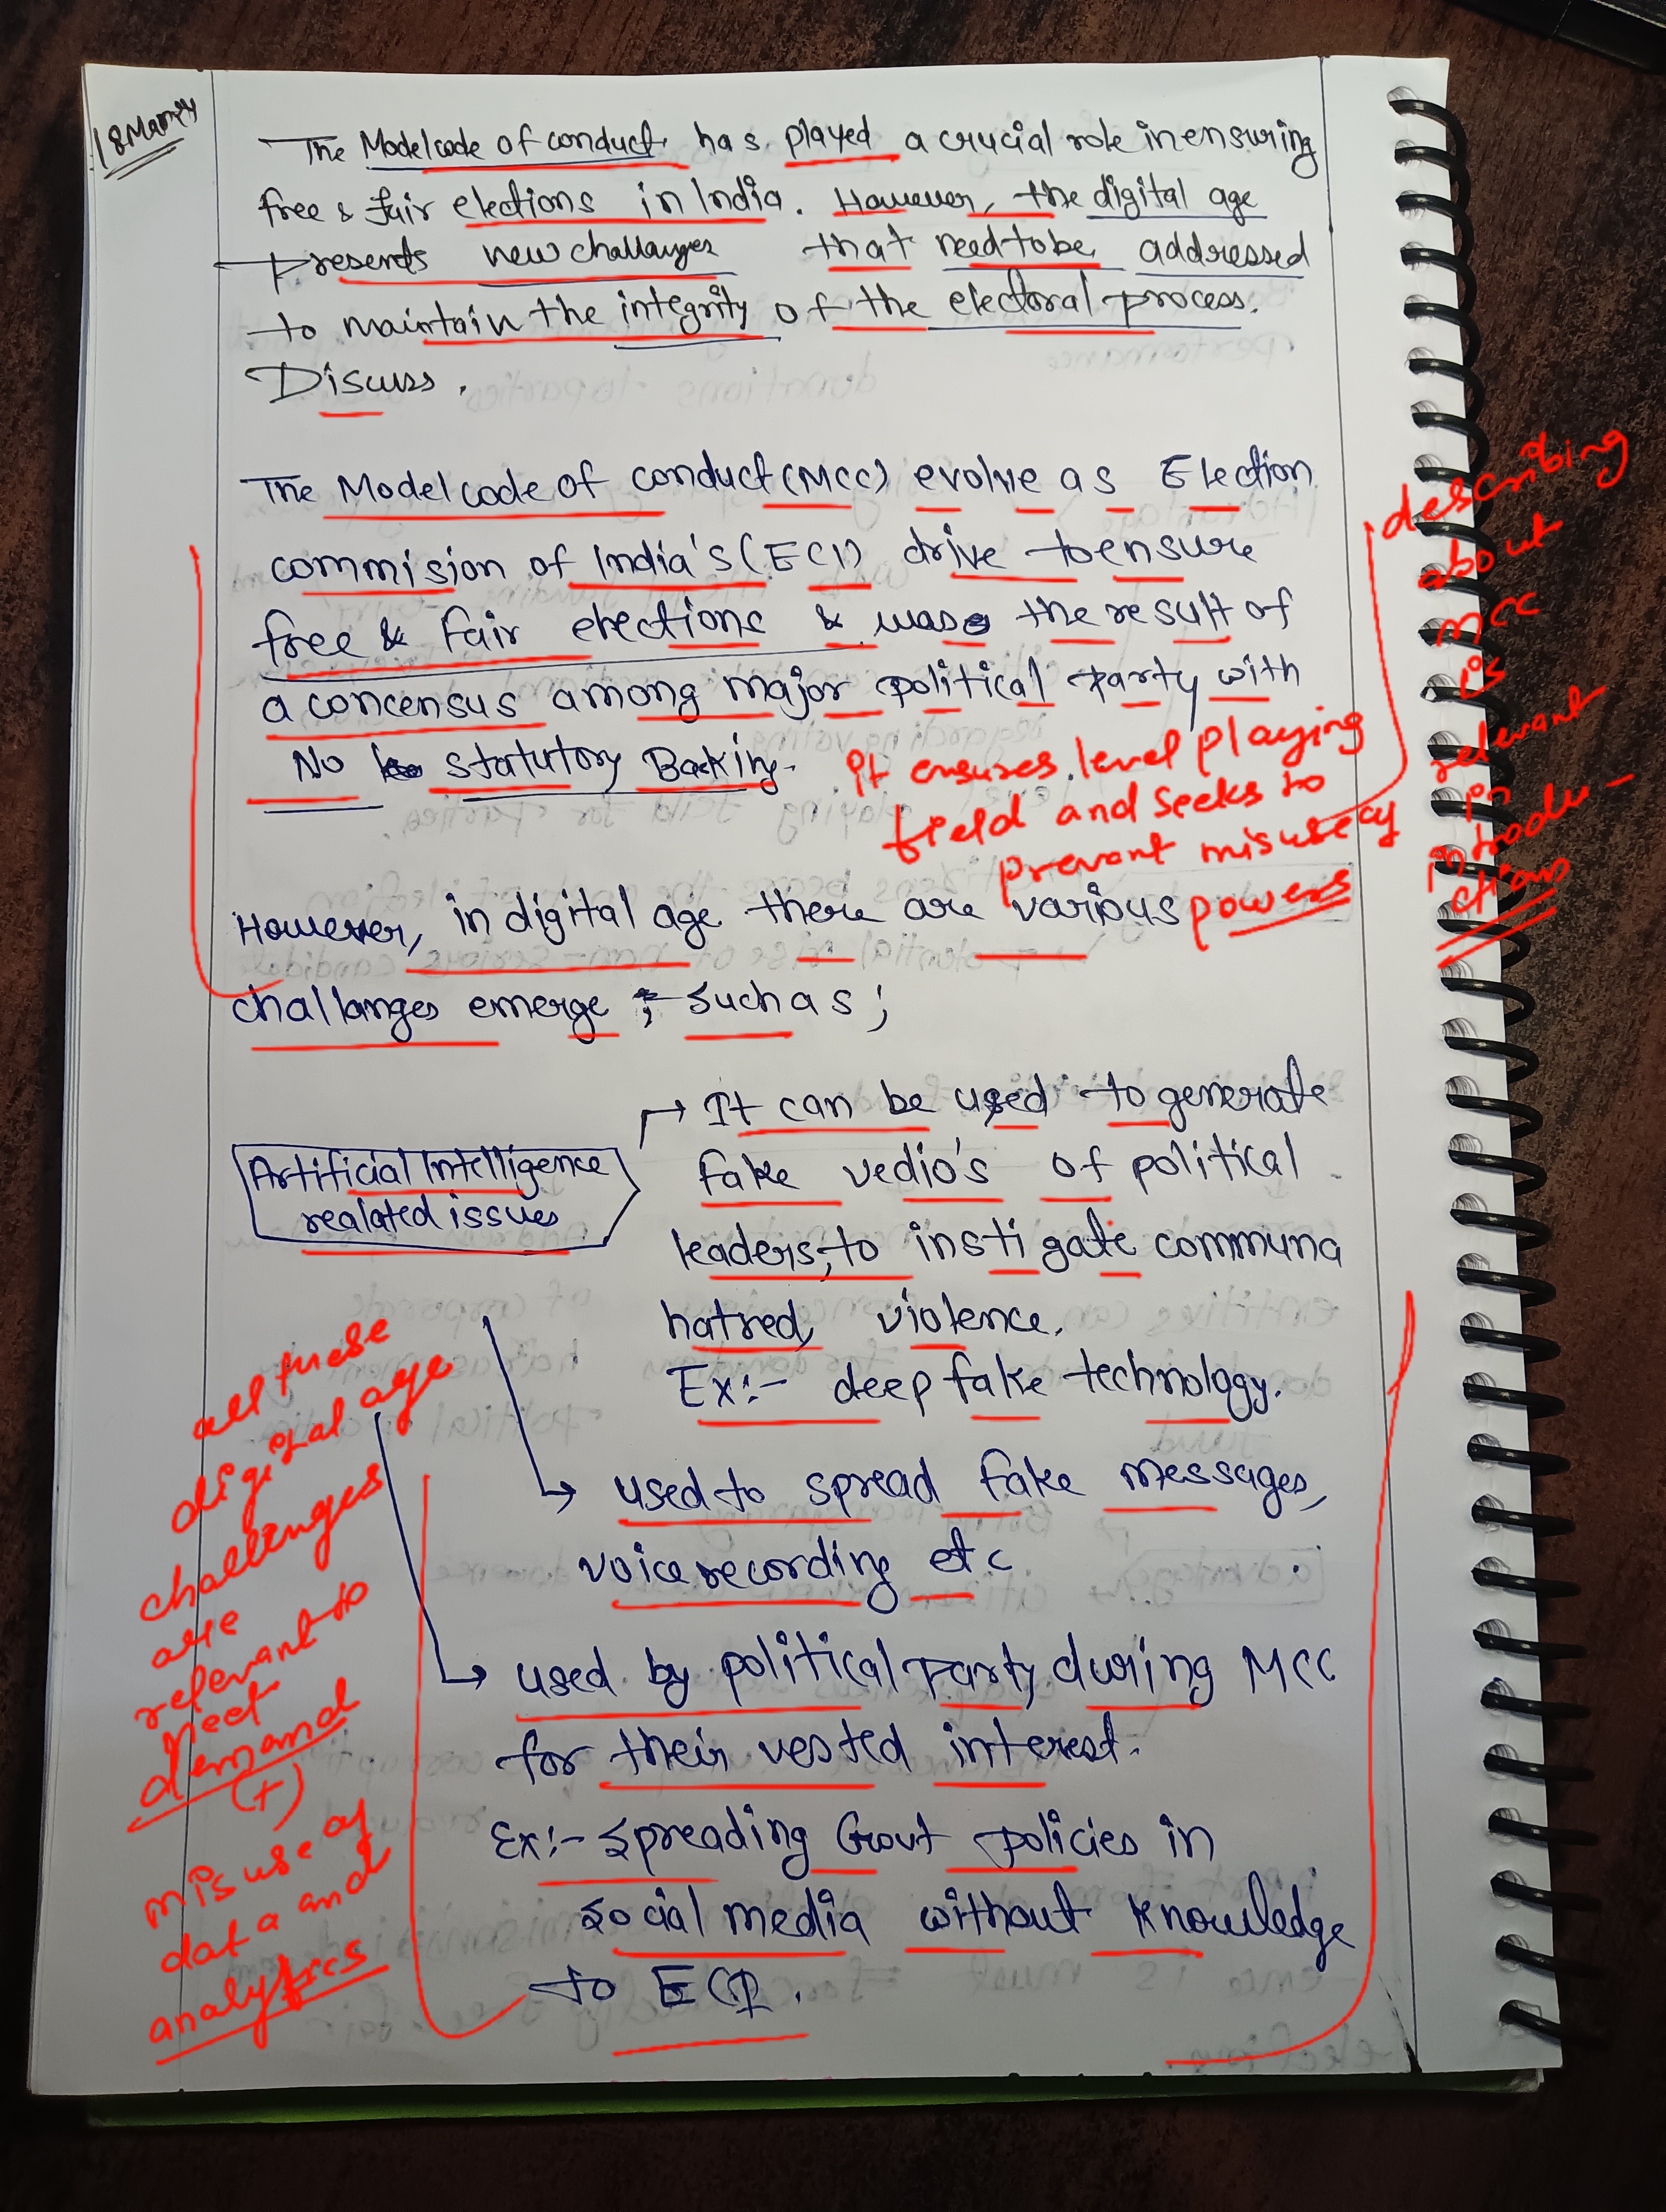 18 Mar 24
The Model code of conduct has played a crucial role in ensuring
free & fair elections in India. However, the digital age
presents new challanges that need to be addressed
to maintain the integrity of the electoral process.
Discuss.
The Model code of conduct (MCC) evolve as Election
commision of India's (ECI) drive to ensure
free & fair elections & was the result of
a concensus among major political party with
No statutory Backing.
it ensures level playing
field and seeks to
prevent misuse of
powers
describing
about
MCC
is
relevant
in
introdu-
ction
However, in digital age there are various
challanges emerge ; such as ;
Artificial Intelligence
realated issues
→ It can be used to generate
fake vedio's of political
leaders, to instigate communa
hatred, violence.
Ex:- deep fake technology.
↳ used to spread fake messages,
voice recording etc.
↳ used by political Party during MCC
for their vested interest.
Ex:- spreading Govt policies in
social media without knowledge
to ECI.
all these
digital age
challenges
are
relevant to
meet
demand
(+)
misuse of
data and
analytics